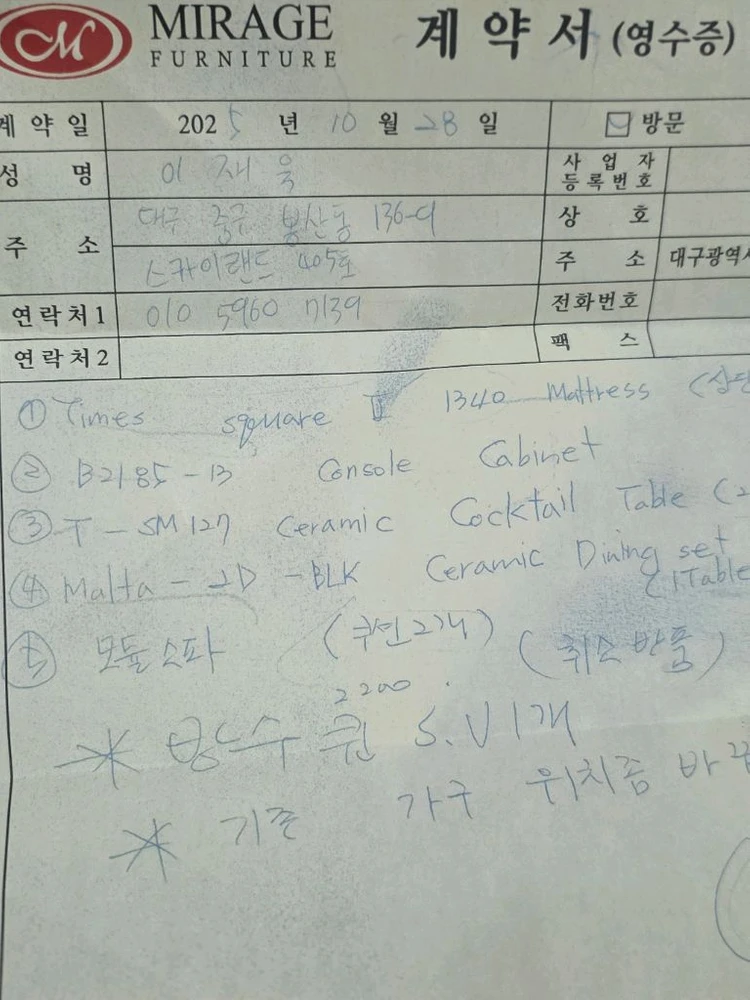 M MIRAGE FURNITURE 계약서 (영수증)
계약일 2025년 10월 28일 방문
성명 이재욱 사업자등록번호
주소 대구 중구 봉산동 136-9 상호
스카이랜드 405호 주소 대구광역시
연락처1 010 5960 7139 전화번호
연락처2 팩스
① Times square II 1340 Mattress (상단
② B2185-13 Console Cabinet
③ T-SM127 Ceramic Cocktail Table (2
④ Malta-2D-BLK Ceramic Dining set
(1Table
⑤ 모듈소파 (쿠션2개) (취소반품)
2200
* 방수 퀸 S.V 1개
* 기존 가구 위치좀 바꾸